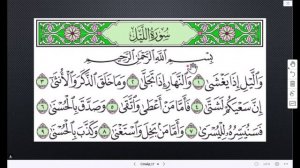 سورة الليل
بِسْمِ اللَّهِ الرَّحْمَٰنِ الرَّحِيمِ
وَاللَّيْلِ إِذَا يَغْشَىٰ ١ وَالنَّهَارِ إِذَا تَجَلَّىٰ ٢ وَمَا خَلَقَ الذَّكَرَ وَالْأُنثَىٰ ٣
إِنَّ سَعْيَكُمْ لَشَتَّىٰ ٤ فَأَمَّا مَنْ أَعْطَىٰ وَاتَّقَىٰ ٥ وَصَدَّقَ بِالْحُسْنَىٰ ٦
فَسَنُيَسِّرُهُ لِلْيُسْرَىٰ ٧ وَأَمَّا مَن بَخِلَ وَاسْتَغْنَىٰ ٨ وَكَذَّبَ بِالْحُسْنَىٰ ٩